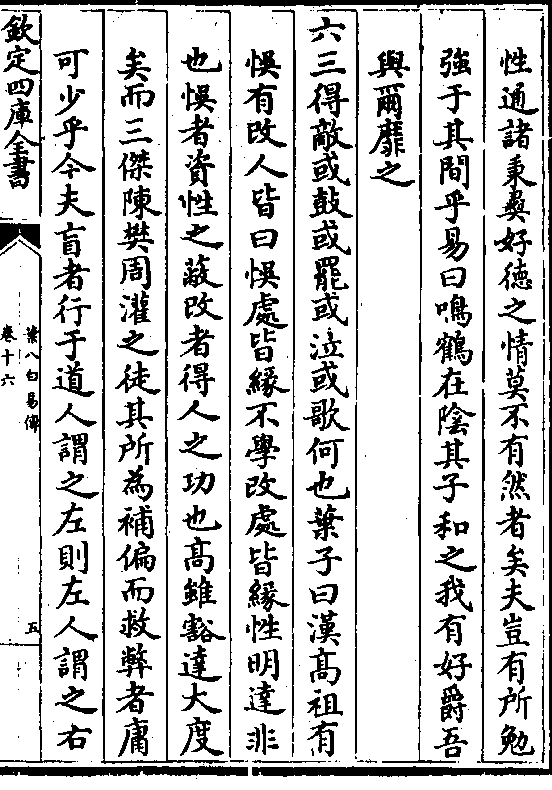 性通諸秉彜好德之情莫不有然者矣夫豈有所勉
強于其間乎易曰鳴鶴在陰其子和之我有好爵吾
與爾靡之
六三得敵或鼓或罷或泣或歌何也葉子曰漢高祖有
悞有改人皆曰悞處皆緣不學改處皆緣性明達非
也悞者資性之蔽改者得人之功也高雖豁達大度
矣而三傑陳樊周灌之徒其所為補偏而救弊者庸
可少乎今夫盲者行于道人謂之左則左人謂之右
欽定四庫全書
葉八白易傳
卷十六
五